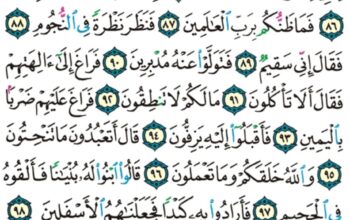 ٨٦ فَمَا ظَنُّكُم بِرَبِّ الْعَالَمِينَ ٨٧ فَنَظَرَ نَظْرَةً فِي النُّجُومِ ٨٨
فَقَالَ إِنِّي سَقِيمٌ ٨٩ فَتَوَلَّوْا عَنْهُ مُدْبِرِينَ ٩٠ فَرَاغَ إِلَىٰ آلِهَتِهِمْ
فَقَالَ أَلَا تَأْكُلُونَ ٩١ مَا لَكُمْ لَا تَنطِقُونَ ٩٢ فَرَاغَ عَلَيْهِمْ ضَرْبًا
بِالْيَمِينِ ٩٣ فَأَقْبَلُوا إِلَيْهِ يَزِفُّونَ ٩٤ قَالَ أَتَعْبُدُونَ مَا تَنْحِتُونَ
٩٥ وَاللَّهُ خَلَقَكُمْ وَمَا تَعْمَلُونَ ٩٦ قَالُوا ابْنُوا لَهُ بُنْيَانًا فَأَلْقُوهُ
فِي الْجَحِيمِ ٩٧ فَأَرَادُوا بِهِ كَيْدًا فَجَعَلْنَاهُمُ الْأَسْفَلِينَ ٩٨